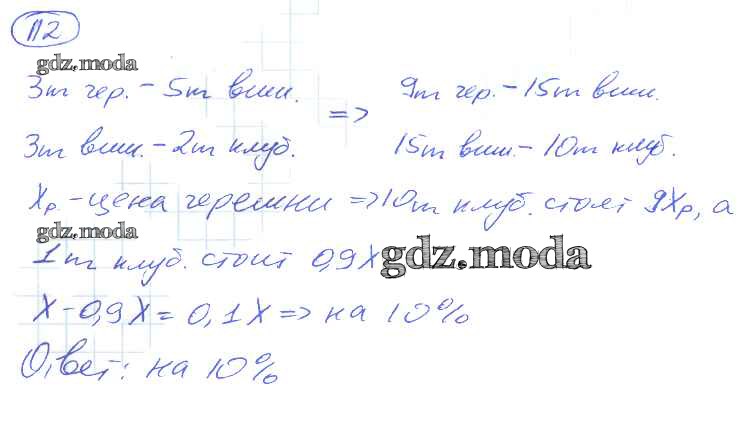 П2
gdz.moda
3т чер. - 5т виш. => 9т чер. - 15т виш.
3т виш. - 2т клуб. 15т виш. - 10т клуб.
Xр. - цена черешни => 10т клуб. стоят 9Xр, а
gdz.moda
1т клуб. стоит 0,9X gdz.moda
X - 0,9X = 0,1X => на 10%
Ответ: на 10%